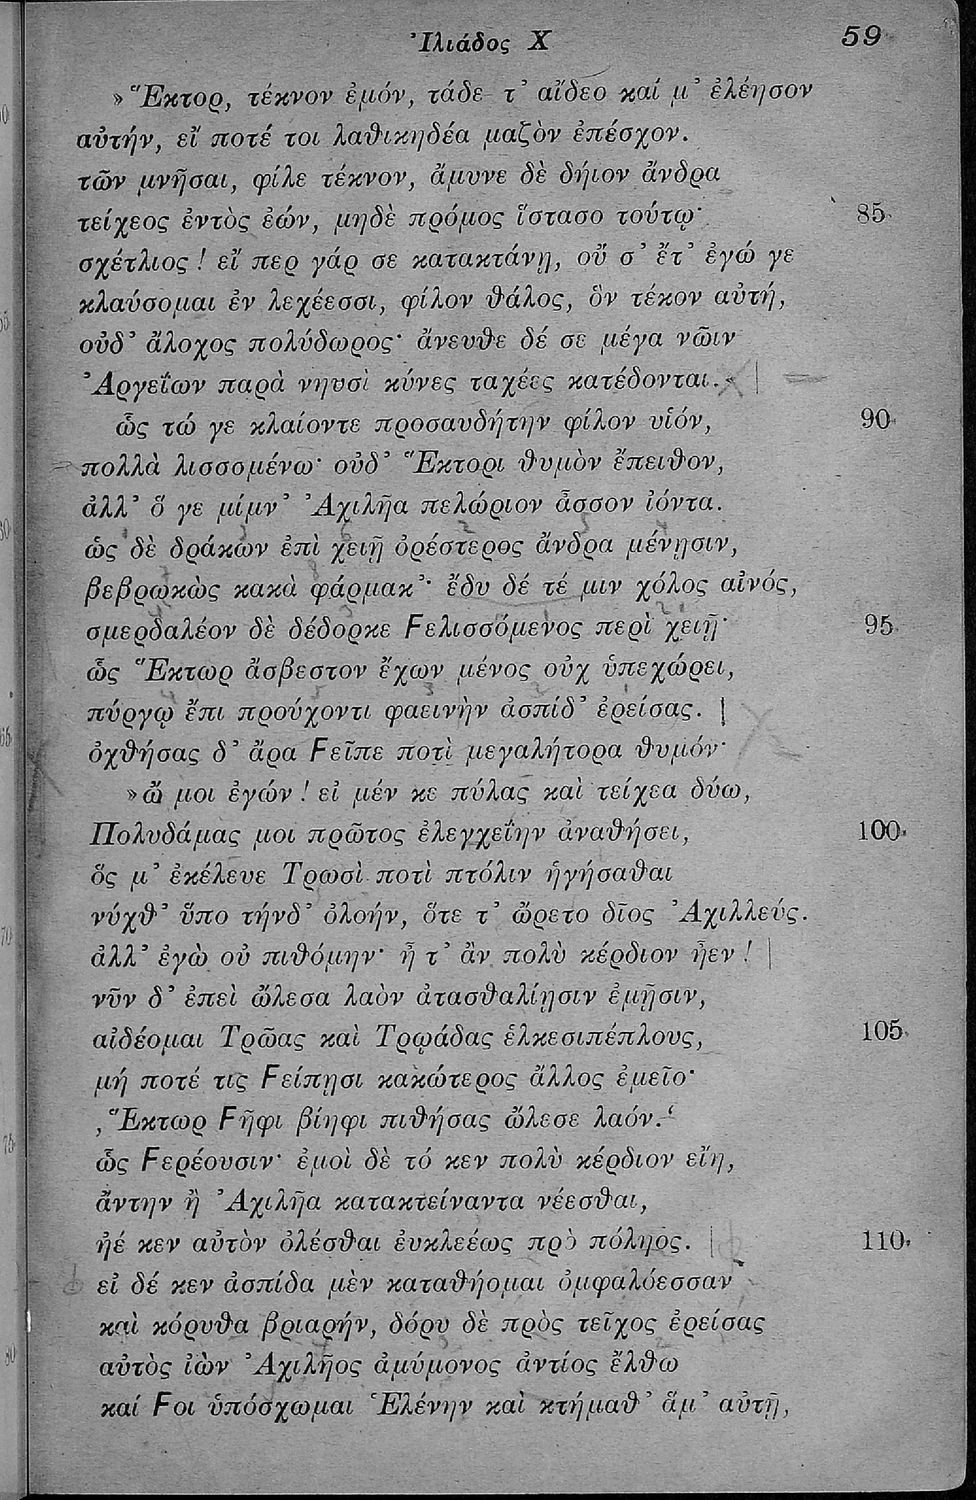 Ἰλιάδος Χ 59
» Ἕκτορ, τέκνον ἐμόν, τάδε τ᾽ αἴδεο καί μ᾽ ἐλέησον
αὐτήν, εἴ ποτέ τοι λαθικηδέα μαζὸν ἐπέσχον.
τῶν μνῆσαι, φίλε τέκνον, ἄμυνε δὲ δήιον ἄνδρα
τείχεος ἐντὸς ἐών, μηδὲ πρόμος ἵστασο τούτῳ· 85
σχέτλιος! εἴ περ γάρ σε κατακτάνῃ, οὔ σ᾽ ἔτ᾽ ἐγώ γε
κλαύσομαι ἐν λεχέεσσι, φίλον θάλος, ὃν τέκον αὐτή,
οὐδ᾽ ἄλοχος πολύδωρος· ἄνευθε δέ σε μέγα νῶιν
Ἀργεΐων παρὰ νηυσὶ κύνες ταχέες κατέδονται.
ὣς τώ γε κλαίοντε προσαυδήτην φίλον υἱόν, 90
πολλὰ λισσομένω· οὐδ᾽ Ἕκτορι θυμὸν ἔπειθον,
ἀλλ᾽ ὅ γε μίμν᾽ Ἀχιλῆα πελώριον ἆσσον ἰόντα.
ὡς δὲ δράκων ἐπὶ χειῇ ὀρέστερος ἄνδρα μένῃσιν,
βεβρωκὼς κακὰ φάρμακ᾽· ἔδυ δέ τέ μιν χόλος αἰνός,
σμερδαλέον δὲ δέδορκε Ϝελισσόμενος περὶ χειῇ· 95
ὣς Ἕκτωρ ἄσβεστον ἔχων μένος οὐχ ὑπεχώρει,
πύργῳ ἔπι προύχοντι φαεινὴν ἀσπίδ᾽ ἐρείσας.
ὀχθήσας δ᾽ ἄρα Ϝεῖπε ποτὶ μεγαλήτορα θυμόν·
» ὤ μοι ἐγών! εἰ μέν κε πύλας καὶ τείχεα δύω,
Πολυδάμας μοι πρῶτος ἐλεγχεΐην ἀναθήσει, 100
ὅς μ᾽ ἐκέλευε Τρωσὶ ποτὶ πτόλιν ἡγήσαθαι
νύχθ᾽ ὕπο τήνδ᾽ ὀλοήν, ὅτε τ᾽ ὤρετο δῖος Ἀχιλλεύς.
ἀλλ᾽ ἐγὼ οὐ πιθόμην· ἦ τ᾽ ἂν πολὺ κέρδιον ἦεν!
νῦν δ᾽ ἐπεὶ ὤλεσα λαὸν ἀτασθαλίῃσιν ἐμῇσιν,
αἰδέομαι Τρῶας καὶ Τρῳάδας ἑλκεσιπέπλους, 105
μή ποτέ τις Ϝείπῃσι κακώτερος ἄλλος ἐμεῖο·
‚Ἕκτωρ Ϝῆφι βίηφι πιθήσας ὤλεσε λαόν.‘
ὣς Ϝερέουσιν· ἐμοὶ δὲ τό κεν πολὺ κέρδιον εἴη,
ἄντην ἢ Ἀχιλῆα κατακτείναντα νέεσθαι,
ἠέ κεν αὐτὸν ὀλέσθαι ἐυκλεέως πρὸ πόληος. 110
εἰ δέ κεν ἀσπίδα μὲν καταθήομαι ὀμφαλόεσσαν
καὶ κόρυθα βριαρήν, δόρυ δὲ πρὸς τεῖχος ἐρείσας
αὐτὸς ἰὼν Ἀχιλῆος ἀμύμονος ἀντίος ἔλθω
καί Ϝοι ὑπόσχωμαι Ἑλένην καὶ κτήμαθ᾽ ἅμ᾽ αὐτῇ,